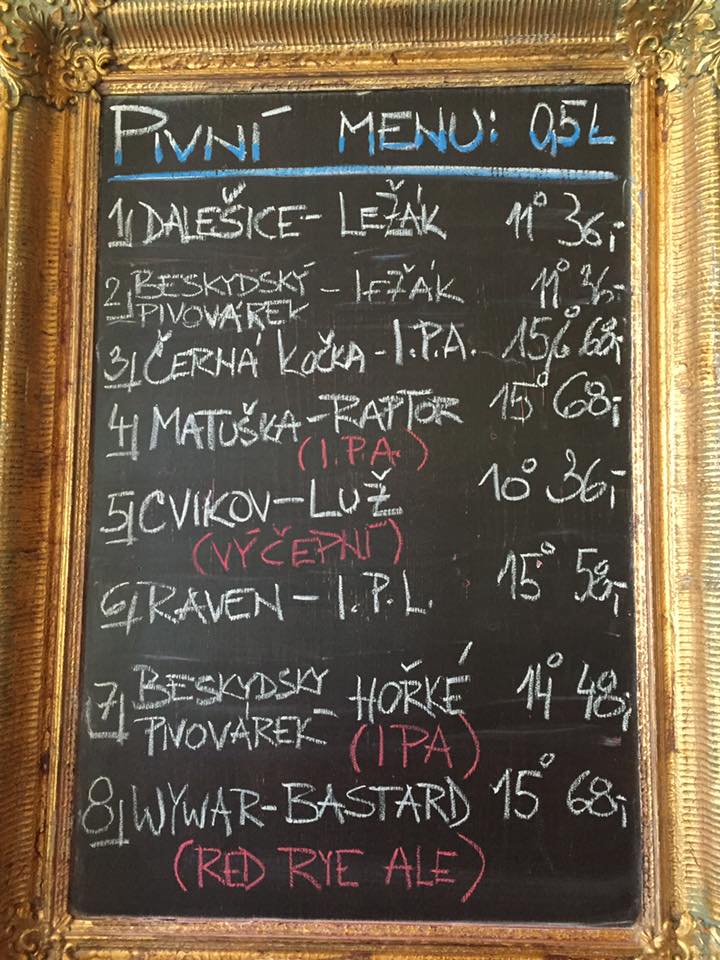 PIVNÍ MENU: 0,5L
1, DALEŠICE - LEŽÁK 11° 36,-
2, BESKYDSKÝ PIVOVÁREK - LEŽÁK 11° 36,-
3, ČERNÁ KOČKA - I.P.A. 15,6° 68,-
4, MATUŠKA - RAPTOR 15° 68,-
(I.P.A.)
5, CVIKOV - LUŽ 10° 36,-
(VÝČEPNÍ)
6, RAVEN - I.P.L. 15° 58,-
7, BESKYDSKÝ PIVOVÁREK HOŘKÉ 14° 48,-
(IPA)
8, WYWAR - BASTARD 15° 68,-
(RED RYE ALE)